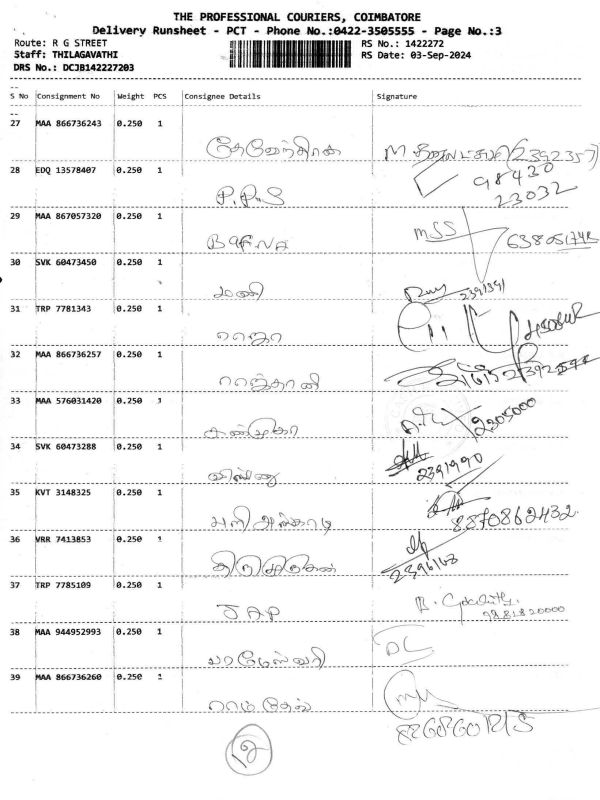 THE PROFESSIONAL COURIERS, COIMBATORE
Delivery Runsheet - PCT - Phone No.:0422-3505555 - Page No.:3
Route: R G STREET RS No.: 1422272
Staff: THILAGAVATHI RS Date: 03-Sep-2024
DRS No.: DCJB142227203
S No Consignment No Weight PCS Consignee Details Signature
27 MAA 866736243 0.250 1
தேவேந்திரா M. (2392357)
28 EDQ 13578407 0.250 1 98430
P.P.S 23032
29 MAA 867057320 0.250 1
BAFNA MSS
30 SVK 60473450 0.250 1
மணி 2391391
31 TRP 7781343 0.250 1
ராஜா
32 MAA 866736257 0.250 1
ராஜ்தானி
33 MAA 576031420 0.250 1
சண்முகா 2305000
34 SVK 60473288 0.250 1
விஷ்ணு 2391990
35 KVT 3148325 0.250 1
மலிஅங்காடி 8870862432
36 VRR 7413853 0.250 1
திருமுருகன் 2396163
37 TRP 7785109 0.250 1
JAP B.
38 MAA 944952993 0.250 1
பரமேஸ்வரி DC
39 MAA 866736260 0.250 1
ராம்தேவ்